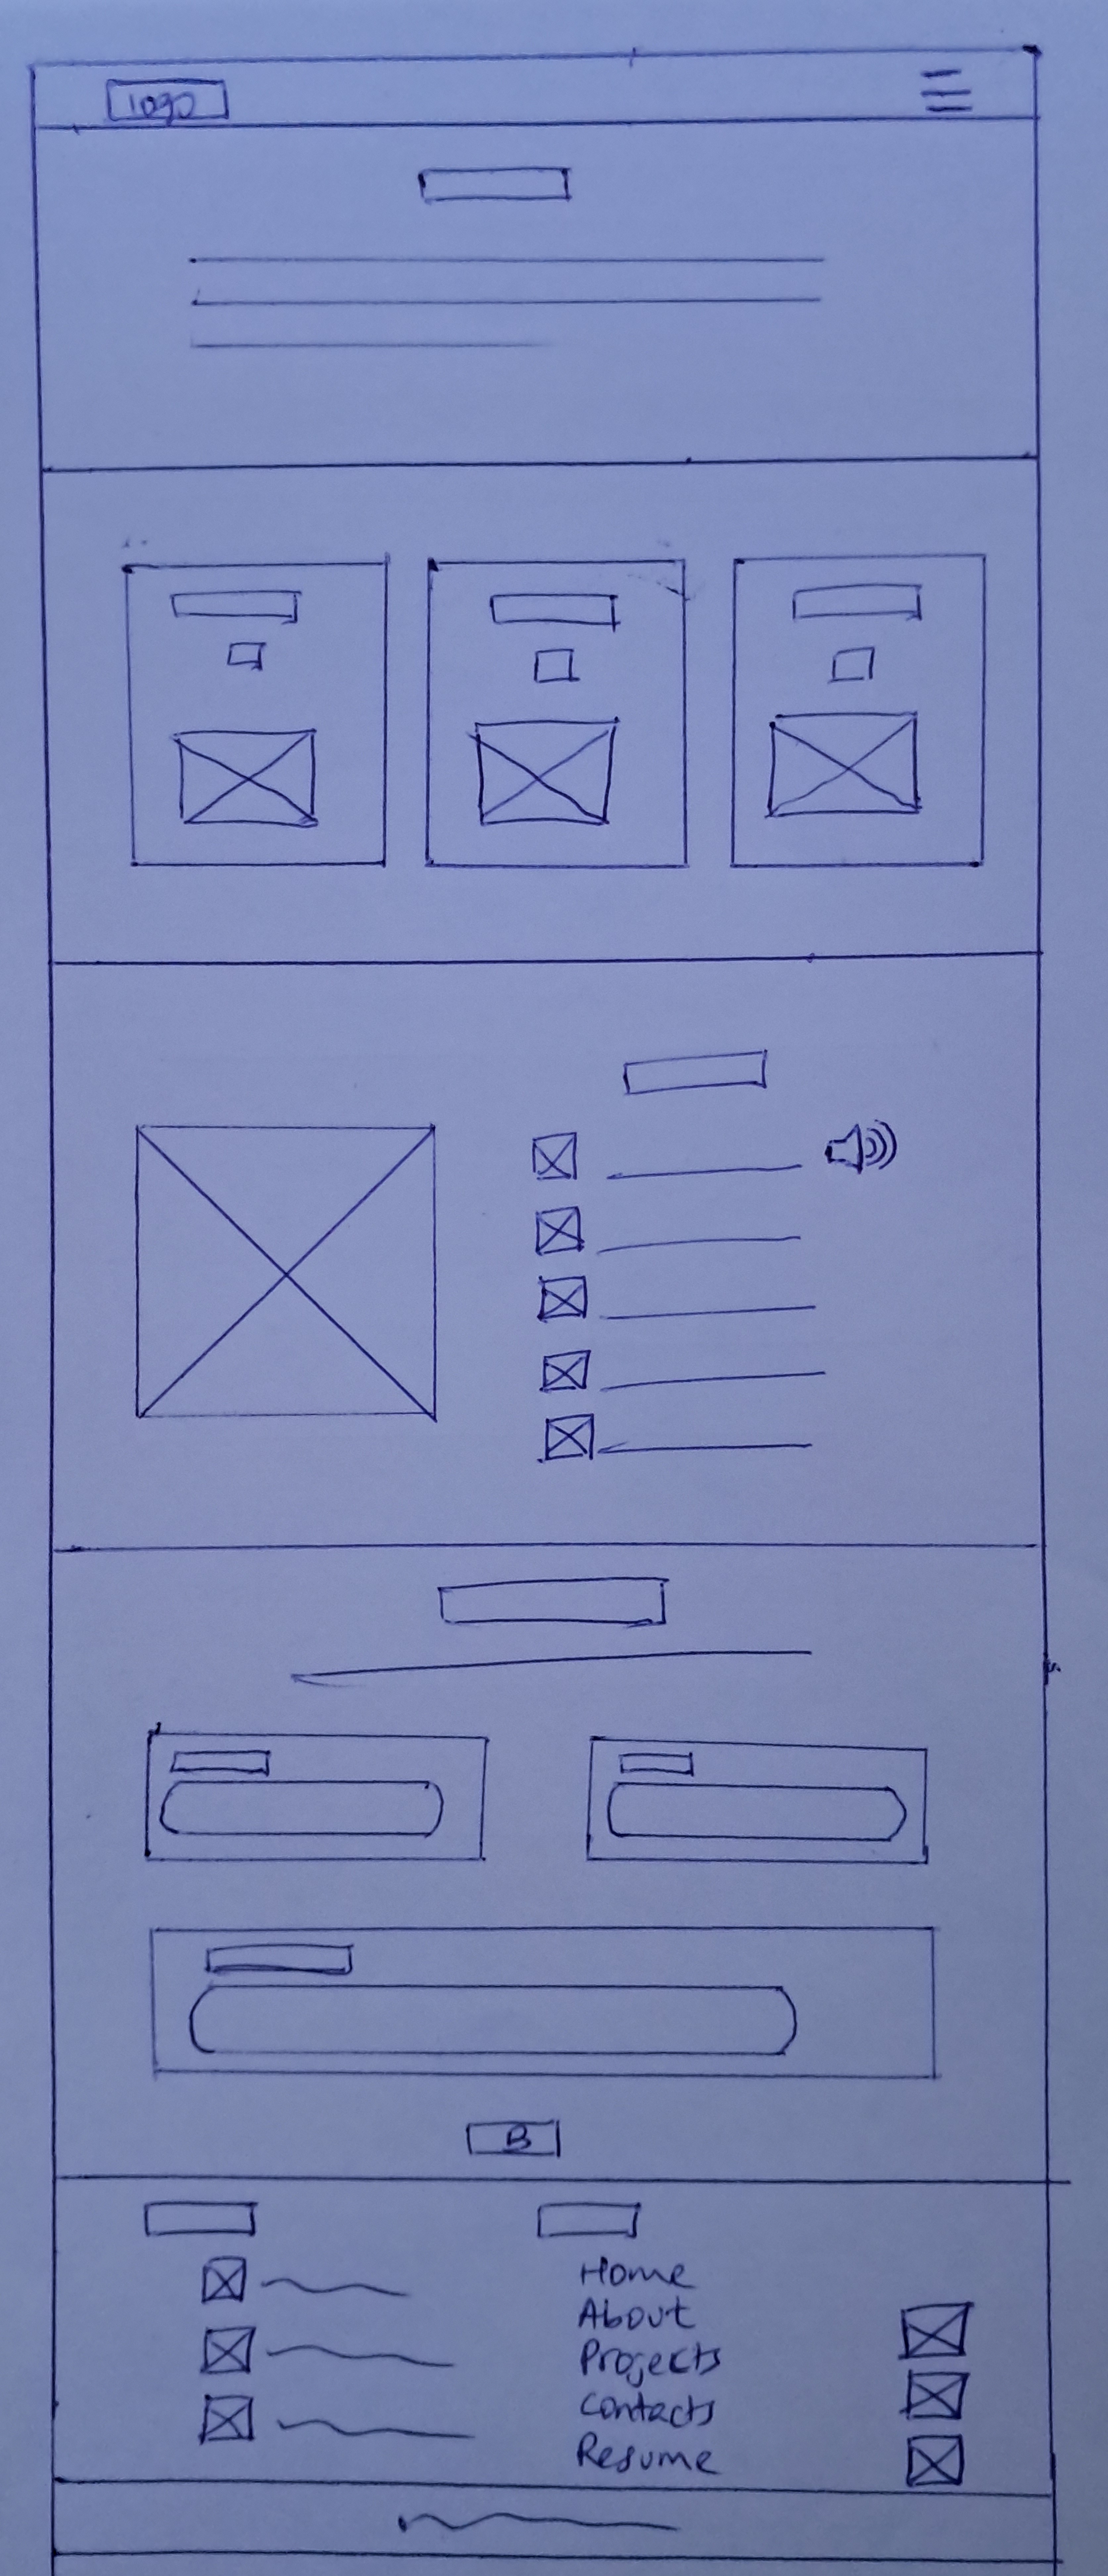 logo
B
Home
About
Projects
Contacts
Resume